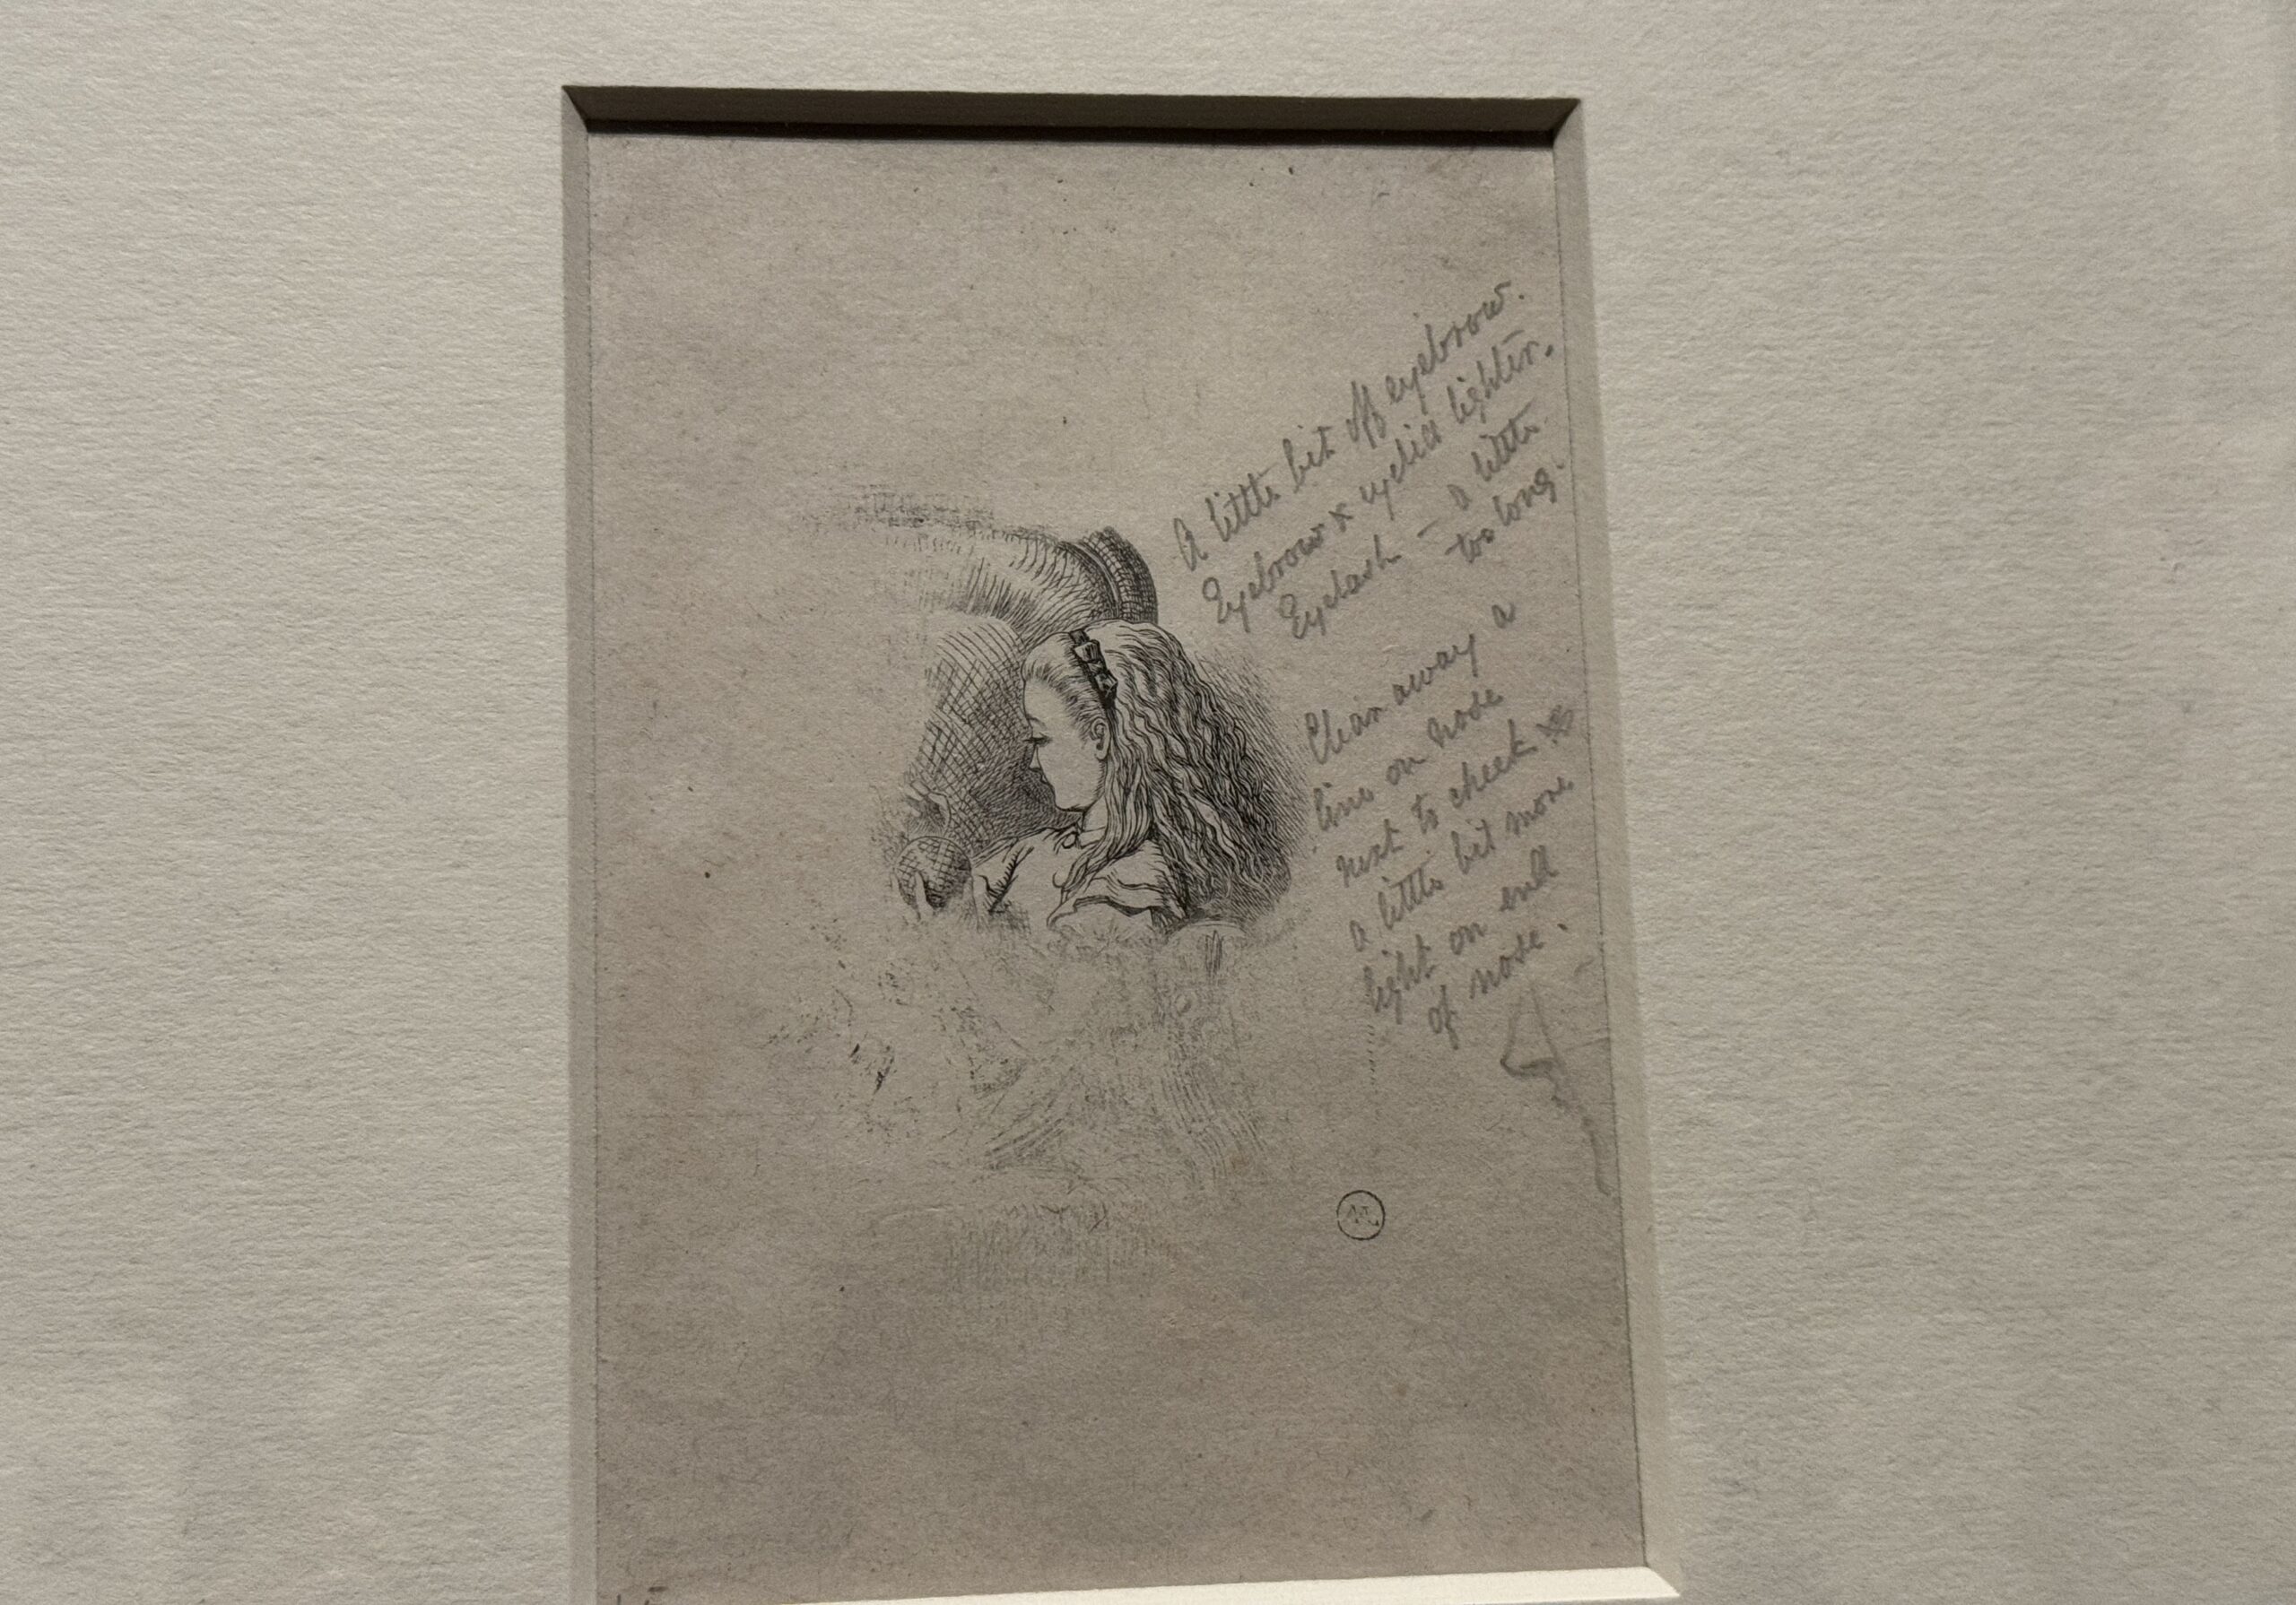 A little bit off eyebrow.
Eyebrow & eyelid lighter.
Eyelash – a little
too long.
Clean away a
line on nose
next to cheek &
a little bit more
light on end
of nose.